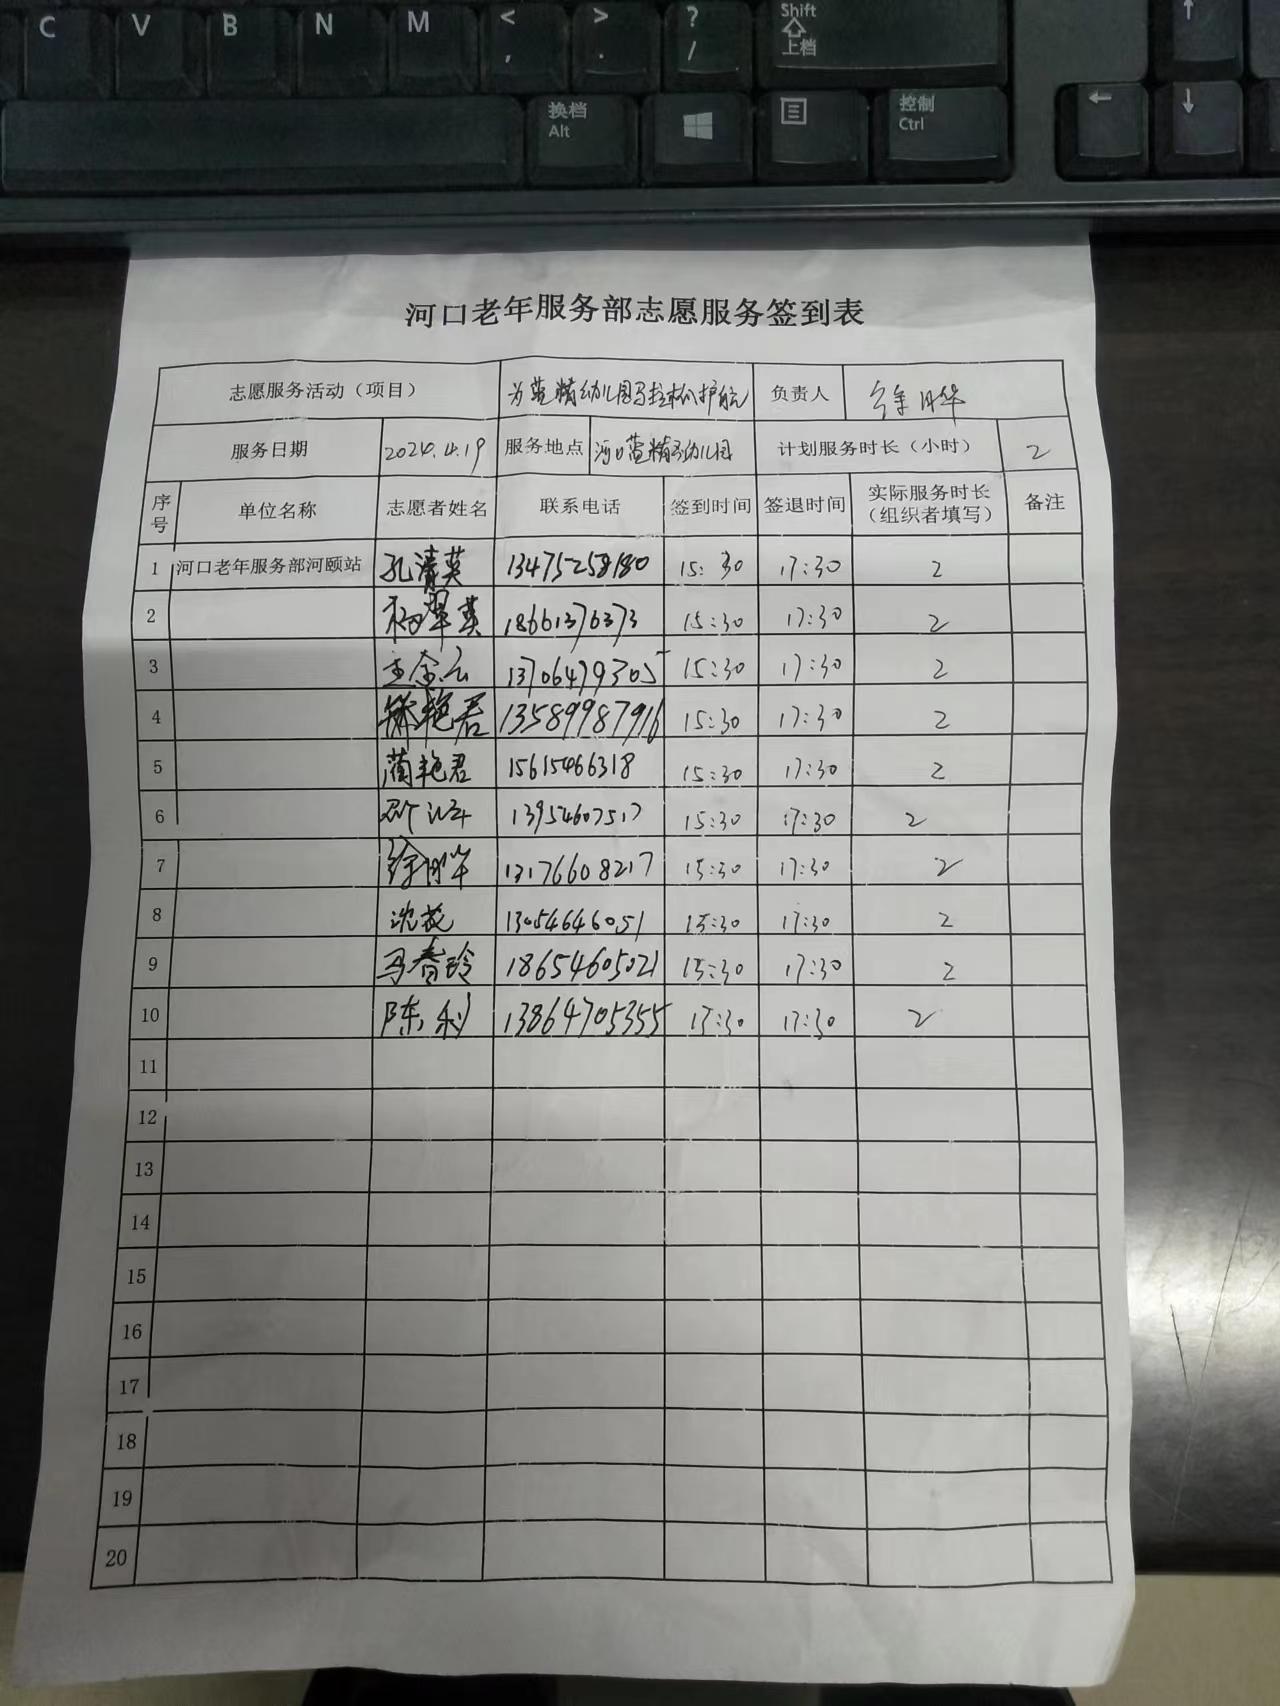 C V B N M < , > . ? / Shift 上档 ↑
换档 Alt 控制 Ctrl ← ↓
河口老年服务部志愿服务签到表
志愿服务活动（项目） 为蓝精幼儿园马拉松护航 负责人 徐明华
服务日期 2024.4.19 服务地点 河口蓝精灵幼儿园 计划服务时长（小时） 2
序号 单位名称 志愿者姓名 联系电话 签到时间 签退时间 实际服务时长（组织者填写） 备注
1 河口老年服务部河颐站 孔清英 13475258180 15:30 17:30 2
2 杨翠英 18661376373 15:30 17:30 2
3 13706479305 15:30 17:30 2
4 艳君 13589987916 15:30 17:30 2
5 蔺艳君 15615466318 15:30 17:30 2
6 13954607517 15:30 17:30 2
7 徐明华 13176608217 15:30 17:30 2
8 沈花 13054646051 15:30 17:30 2
9 马春玲 18654605021 15:30 17:30 2
10 陈利 13864705355 15:30 17:30 2
11
12
13
14
15
16
17
18
19
20